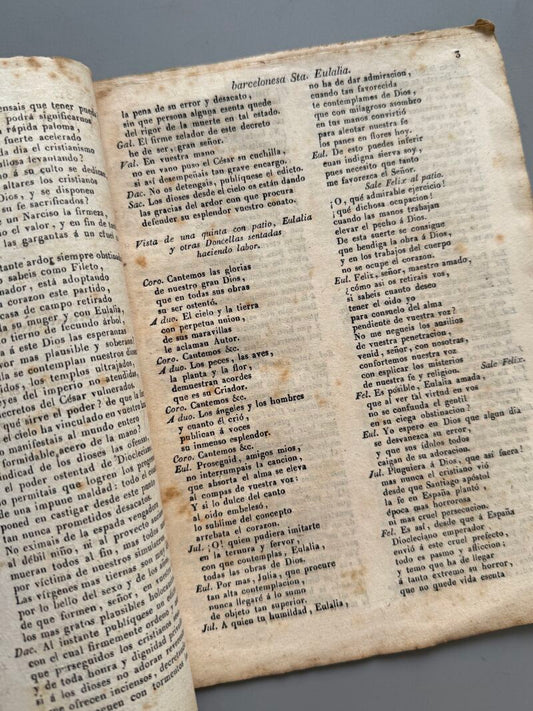 ensais que tener pueda
podrá significarme
rápida paloma,
fuerte acelerado
dia el cristianismo
llosa levantando?
á su culto se dedican
altares los cristianos
Dios, y se disponen
su fe sacrificados?
un Narciso la firmeza,
o el valor, y en fin de tan
las gargantas á un cruel
ardor siempre obstina
sabeis como Fileto,
dad, está adoptando
corazon este partido.
casa de campo retirado
su muger y con Eulalia,
tierno de fecundo árbol,
á este Dios las esperan
mas plausible y sobera
se contemplan nuestros dioses
los templos nitrajados,
leyes del imperio no atendidas,
decretos del César vulnerados.
qué sirve el poder? de que la
el cielo ha vinculado en vuestra
manifestais al mundo entero
formidable acero de la mano?
indicad de los dioses las ofensas,
el poder ostentad de Diocleciano,
permitais que logren los progresos
de una impune maldad: todo el
poned en castigar desde este
tan nunca prometidos desacatos.
No eximais de la espada vengadora
al débil niño; ni al proyecto anciano,
mueran todos al fin, una todos
por víctima de nuestros simulacros.
Las vírgenes mas tiernas son
por lo bello del sexo y de los años
de que formen, señor, en vuestra
los mas gratos plausibles holocaustos.
Dac. Al instante publíquese un decreto
con el cual firmemente ordeno y
que perseguidos los cristianos
y de toda honra y dignidad privados
si á los dioses no adoran reverentes
ofrecen inciensos, decreto
con tormentos
barcelonesa Sta. Eulalia.
3
la pena de su error y desacato,
sin que persona alguna esenta quede
del rigor de la muerte en tal estado.
Gal. El firme zelador de este decreto
he de ser, gran señor.
Val. En vuestra mano
no en vano puso el César su cuchilla,
si así desempeñais tan grave encargo.
Dac. No os detengais, publíquese el edicto.
Sac. Los dioses desde el cielo os están dando
las gracias del ardor con que procura
defender su esplendor vuestro conato.
Vista de una quinta con patio, Eulalia
y otras Doncellas sentadas
haciendo labor.
Coro. Cantemos las glorias
de nuestro gran Dios,
que en todas sus obras
su ser ostentó.
A duo. El cielo y la tierra
con perpetua union,
de sus maravillas
le aclaman Autor.
Coro. Cantemos &c.
A duo. Los peces, las aves,
la planta y la flor,
demuestran acordes
que es su Crisdor.
Coro. Cantemos &c.
A duo. Los ángeles y los hombres
y cuanto él crió,
publican á voces
su inmenso esplendor.
Coro. Cantemos &c.
Eul. Proseguid, amigos mios,
no interrumpais la cancion,
que absorta el alma se eleva
al compas de vuestra voz:
Y si lo dulce del canto
al oido embelesó,
lo sublime del concepto
arrebata el corazon.
Jul. ¡O! quien pudiera imitarte
en la ternura y fervor,
con que contemplas, Eulalia,
todas las obras de Dios.
Eul. Por mas, Julia, que procure
tan alta contemplacion,
nunca llegaré á lo sumo
de objeto tan superior.
Jul. A quien tu humildad, Eulalia,
no ha de dar admiracion,
cuando tan favorecida
te contemplamos de Dios,
que con milagroso asombro
en tus manos convirtió
para alentar nuestra fe
los panes en flores hoy.
Eul. De esto puedes inferir
cuan indigna sierva soy,
pues necesito que tanto
me favorezca el Señor.
Sale Felix al patio.
¡O, qué admirable ejercicio!
¡qué dichosa ocupacion!
cuando las manos trabajan
elevar el pecho á Dios.
De esta suerte se consigue
que bendiga la obra á Dios,
y en los trabajos del cuerpo
no se ocupe el corazon.
Eul. Felix, señor, maestro amado,
¿cómo asi os retirais vos,
si sabeis cuanto deseo
tener el oido yo
para consuelo del alma
pendiente de vuestra voz?
No me negueis los ausilios
de vuestra penetracion,
venid, señor, con nosotras,
confortemos nuestra voz
con esplicar los misterios
de nuestra fe y religion.
Sale Felix.
Fel. Es posible, Eulalia amada,
que al ver tal virtud en vos
no se confunda el gentil
en su ciega obstinacion?
Eul. Yo espero en Dios que algun dia
se desvanezca su error,
y que sus ídolos todos
caigan de su adoracion.
Jul. Pluguiera á Dios, que así fuera!
mas nunca el cristiano vió
desde que Santiago apóstol
la fe en España plantó
época mas horrorosa
ni mas cruel persecucion.
Fel. Es así, desde que á España
Diocleciano emperador
envió á este cruel prefecto,
todo es pasmo y afliccion,
y temo que ha de llegar
á tanto extremo su horror,
que no quede vida esenta